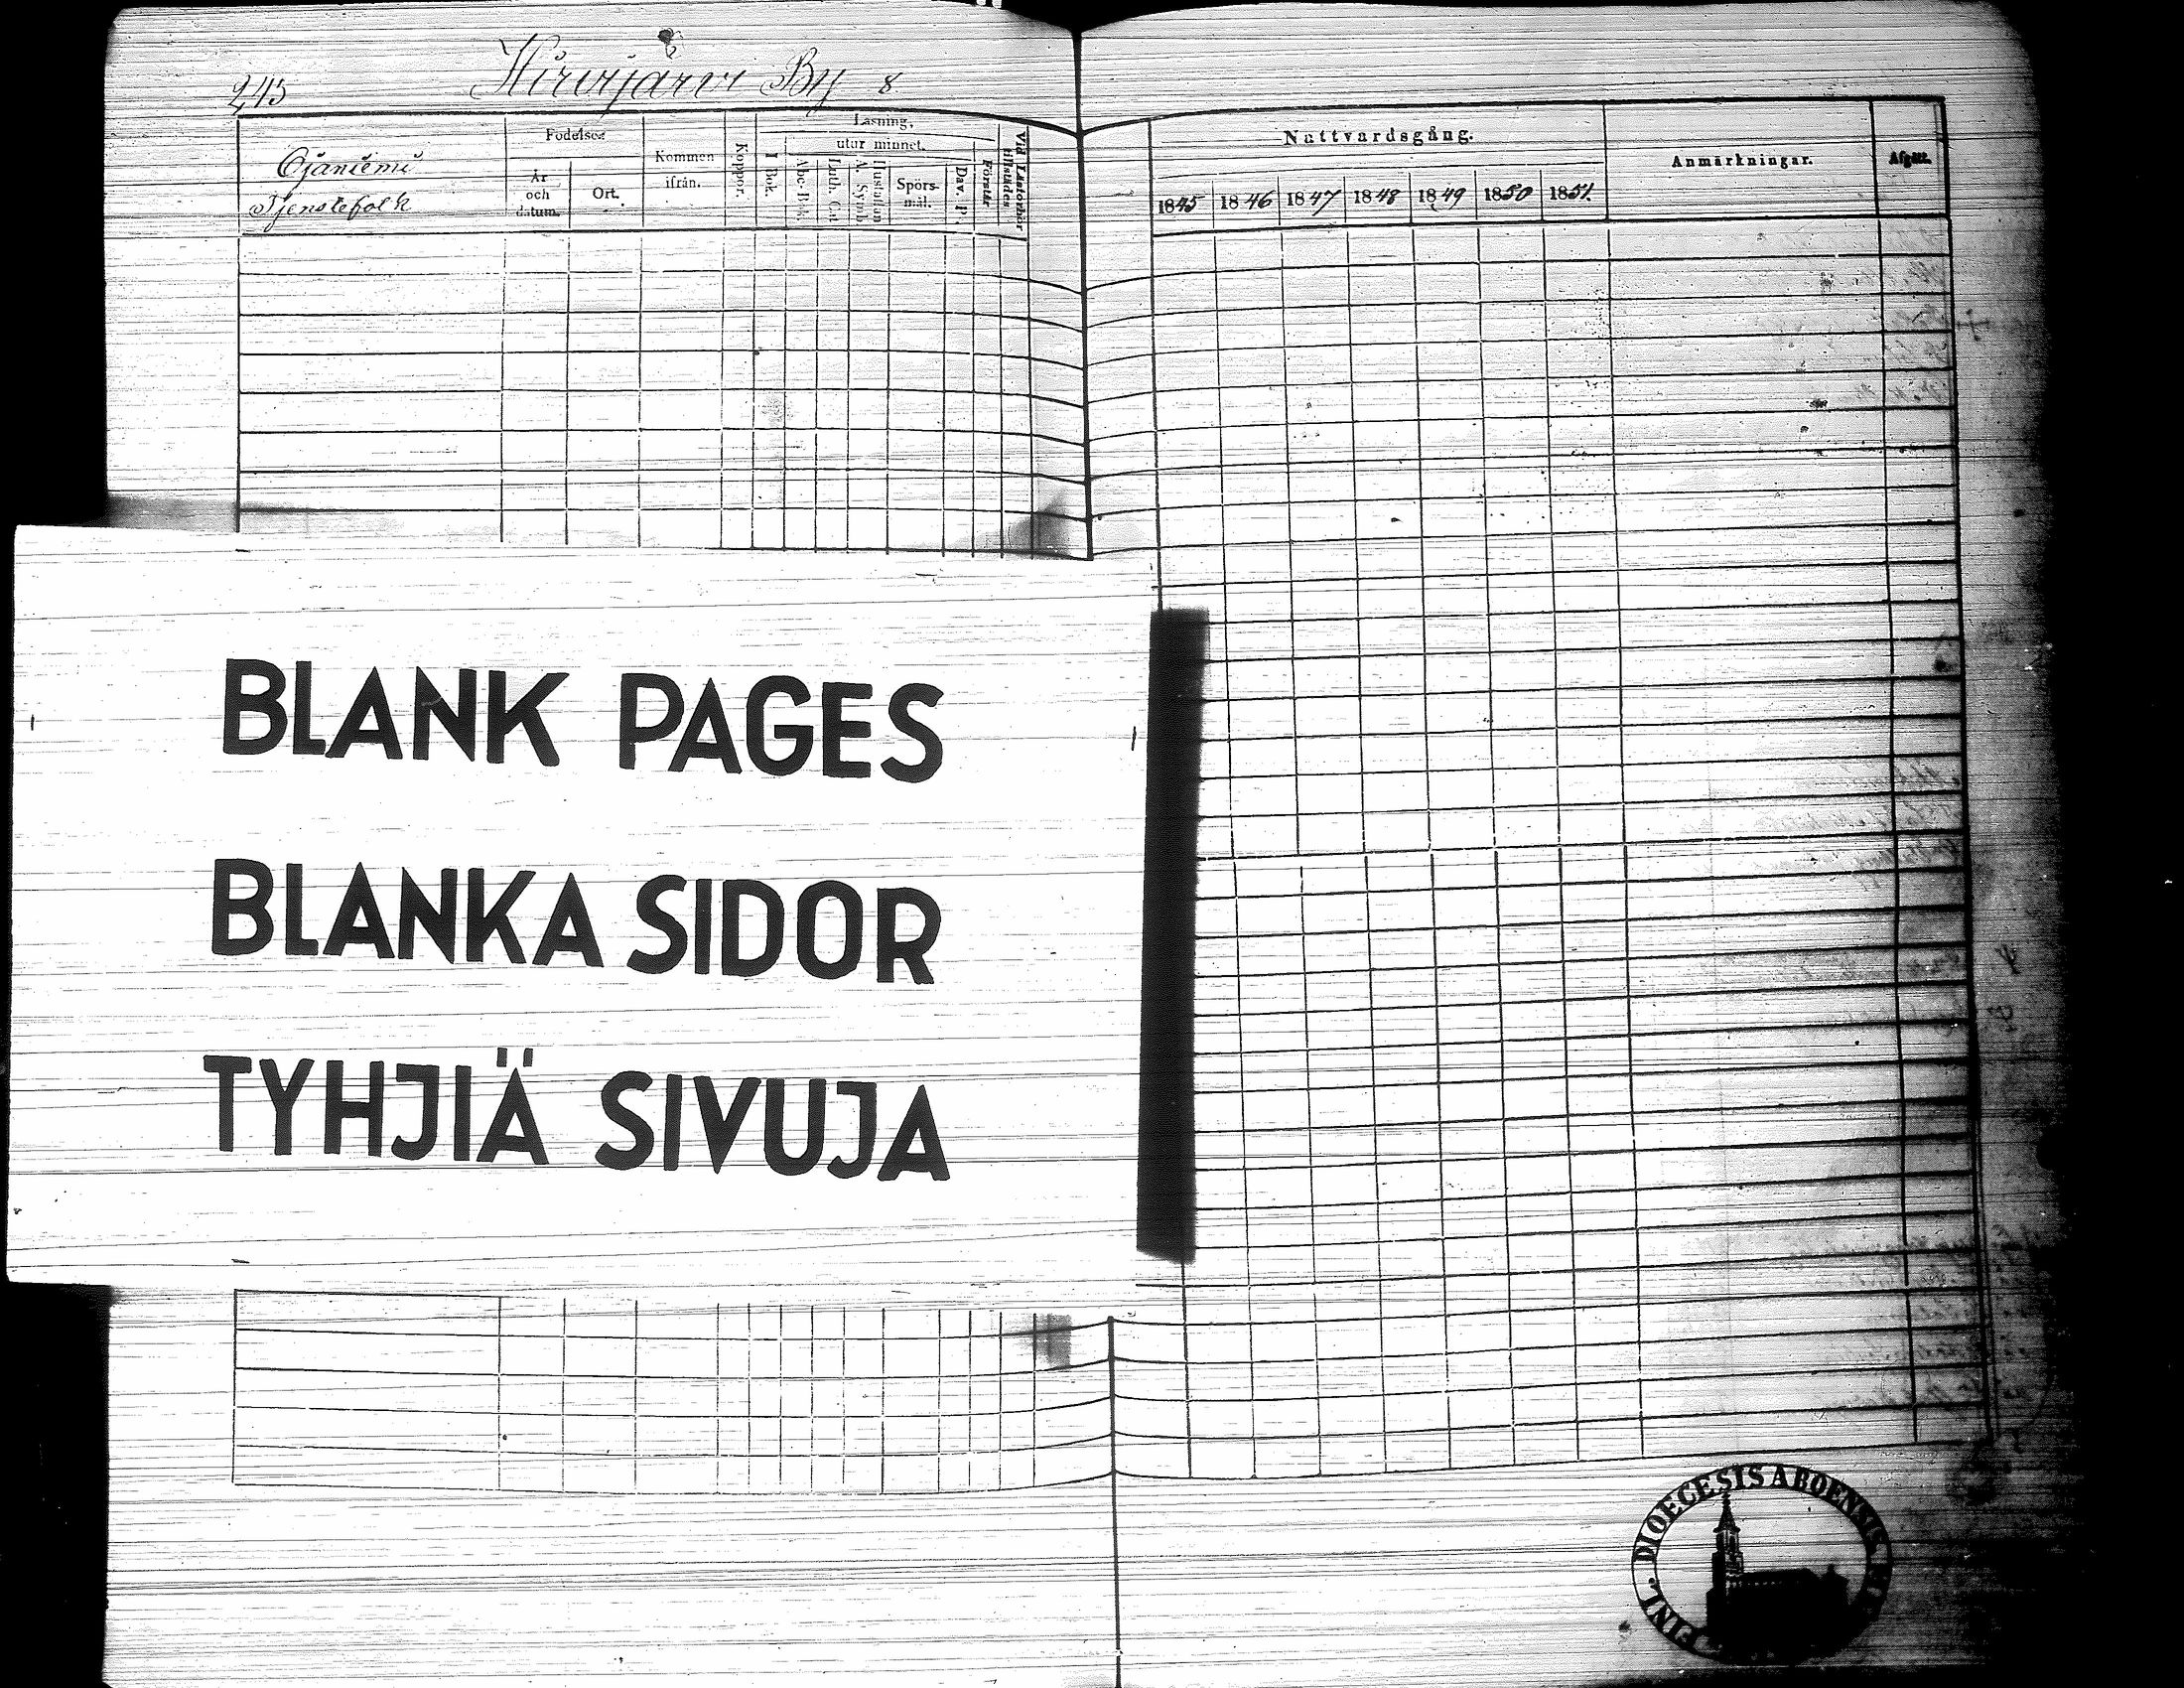 243 Hirvijärvi By 8
Ojaniemi
Tjenstefolk
Födelse=
År
och
datum.
Ort.
Kommen
ifrån.
Koppor.
Läsning,
I Bok.
utur minnet.
Abc-Bok.
Luth. Cat
A. Symb.
Hustaflan
Spörs-
mål.
Dav. P.
Förstår
Vid Läseförhör
tillstädes.
Nattvardsgång.
1845 1846 1847 1848 1849 1850 1851.
Anmärkningar.
Afgått.
BLANK PAGES
BLANKA SIDOR
TYHJIÄ SIVUJA
FINL. DIOECESIS ABOENSIS